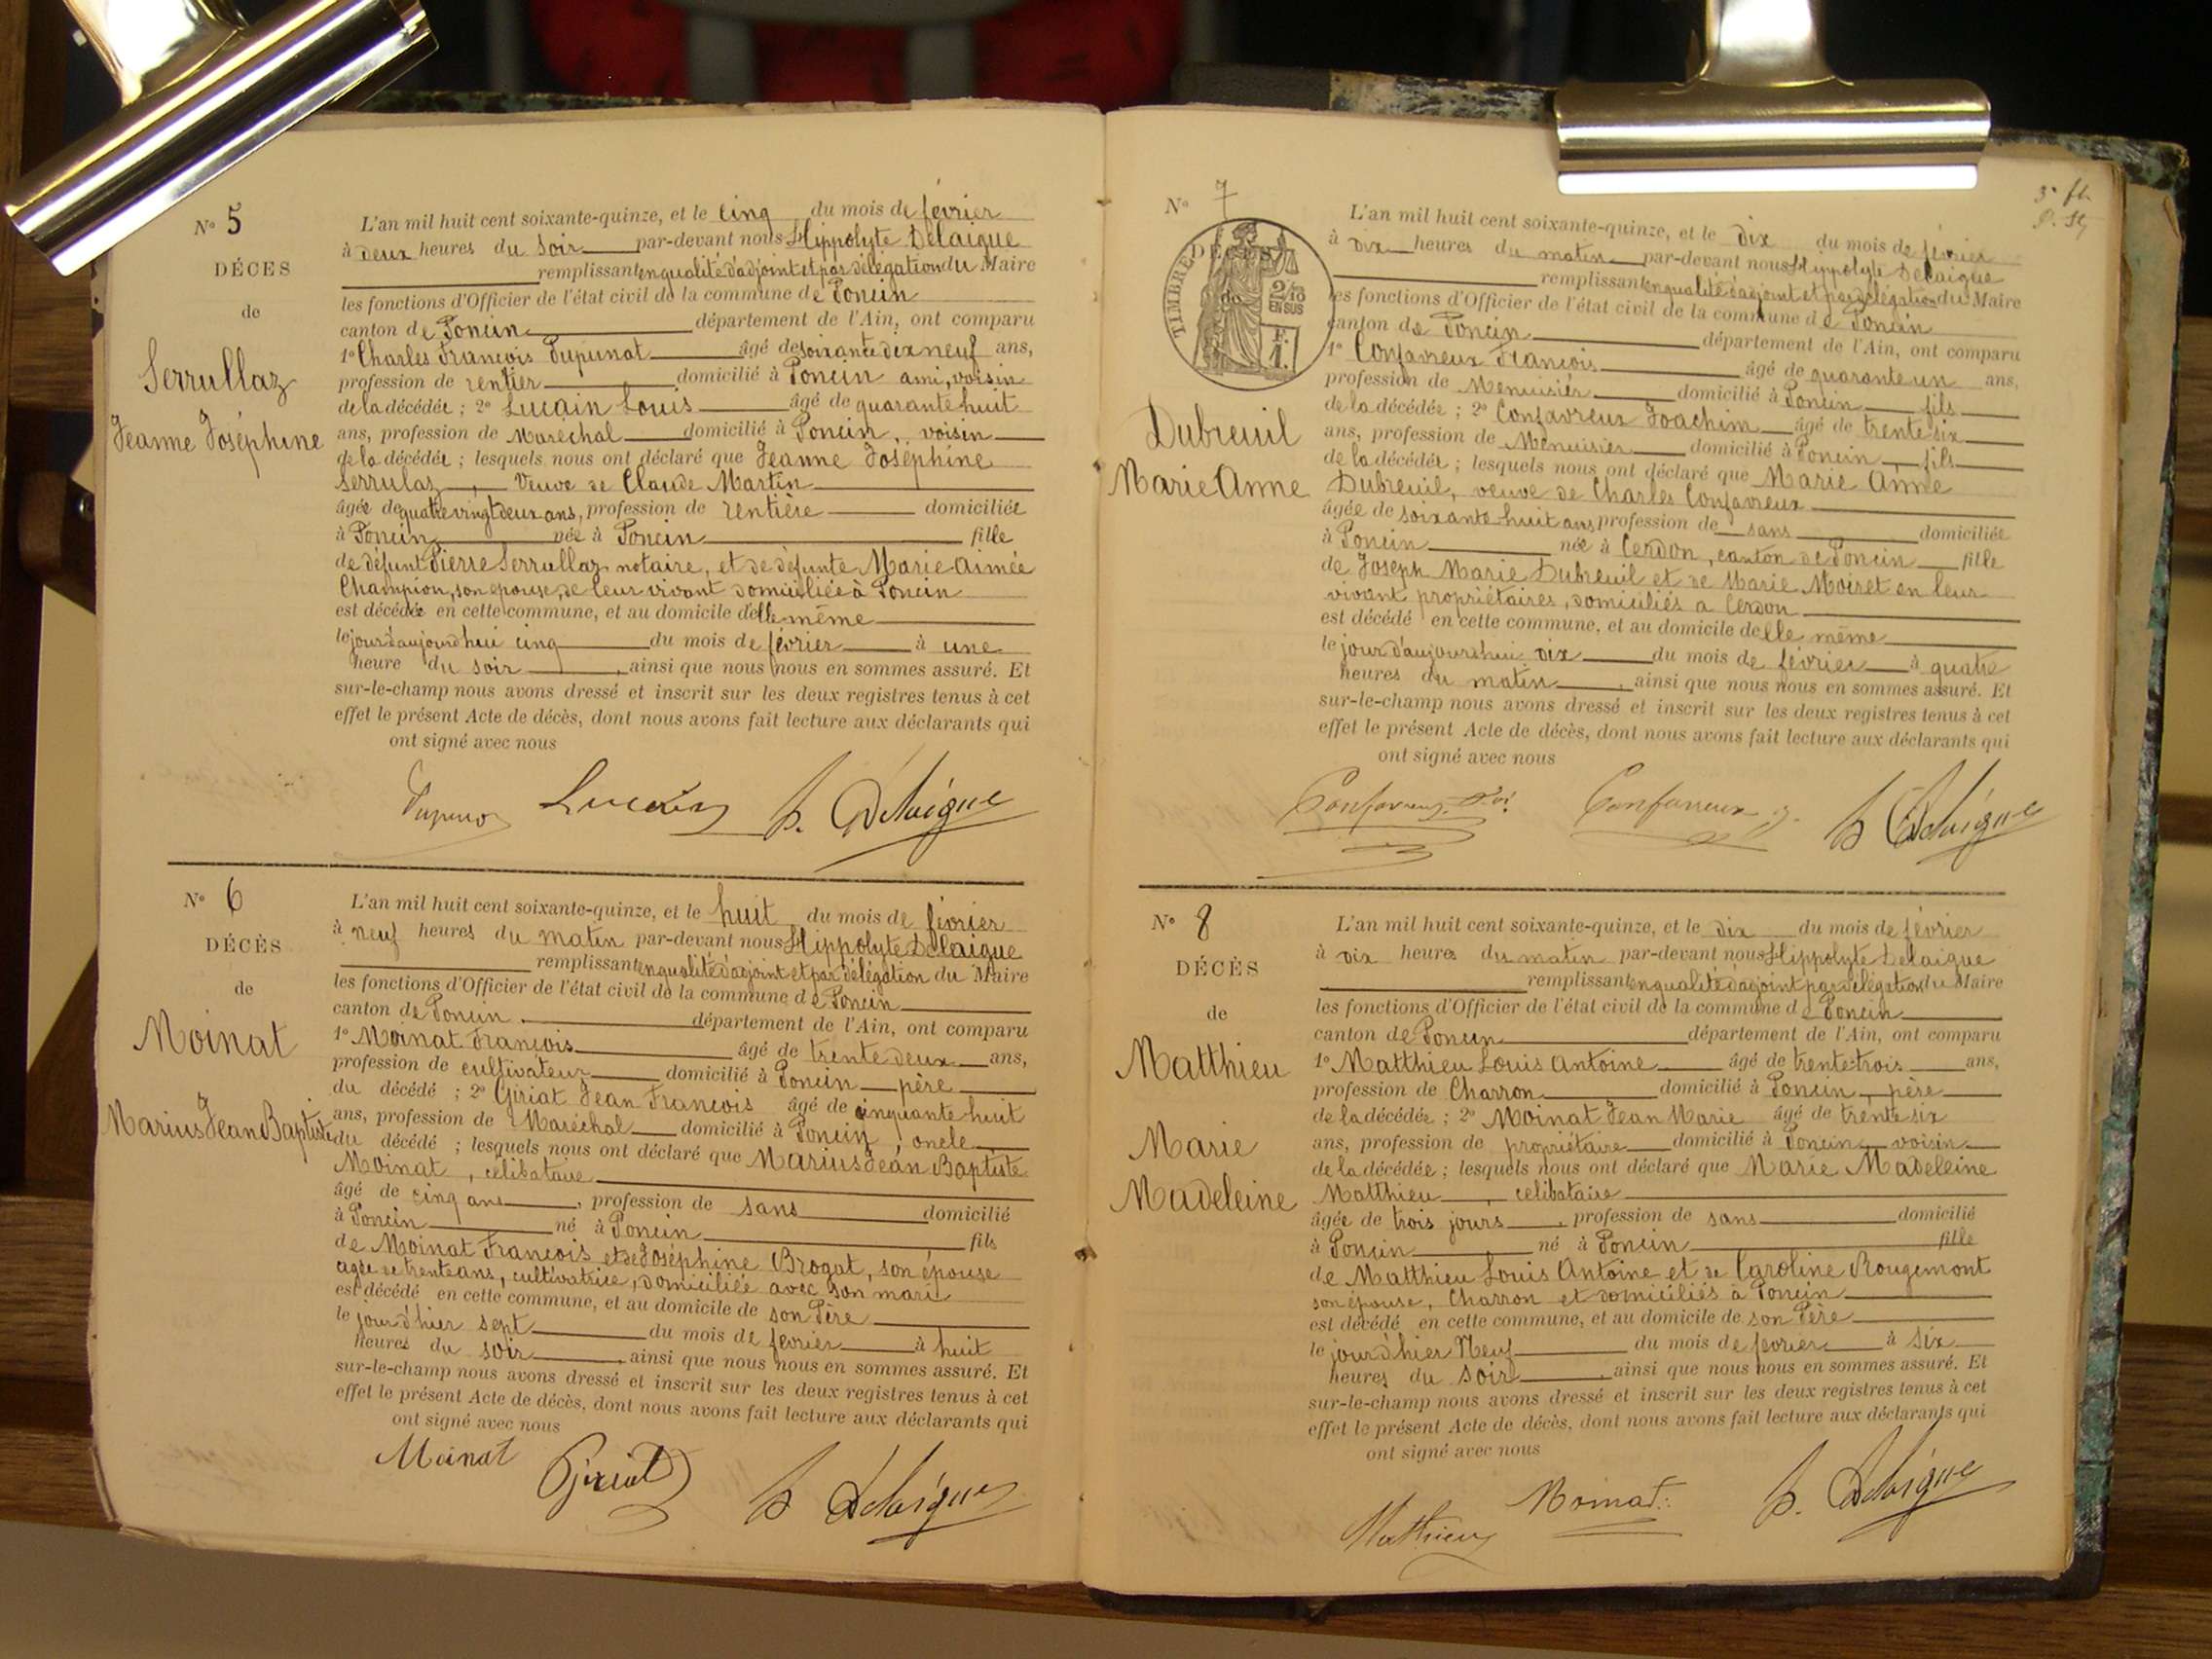 N° 5
DÉCÈS
de
Serrullaz
Jeanne Joséphine
L'an mil huit cent soixante-quinze, et le cinq du mois de février
à deux heures du soir par-devant nous Hippolyte Delaigue
remplissant en qualité d'adjoint et par délégation du Maire
les fonctions d'Officier de l'état civil de la commune de Poncin
canton de Poncin département de l'Ain, ont comparu
1° Charles François Pupunat âgé de soixante dix neuf ans,
profession de rentier domicilié à Poncin ami, voisin
de la décédée ; 2° Lucain Louis âgé de quarante huit
ans, profession de Maréchal domicilié à Poncin, voisin
de la décédée ; lesquels nous ont déclaré que Jeanne Joséphine
Serrulaz, Veuve de Claude Martin
âgée de quatre vingt deux ans, profession de rentière domiciliée
à Poncin née à Poncin fille
de défunt Pierre Serrullaz notaire, et de défunte Marie Aimée
Champion, son épouse, de leur vivant domiciliée à Poncin
est décédée en cette commune, et au domicile d'elle même
le jour d'aujourd'hui cinq du mois de février à une
heure du soir, ainsi que nous nous en sommes assuré. Et
sur-le-champ nous avons dressé et inscrit sur les deux registres tenus à cet
effet le présent Acte de décès, dont nous avons fait lecture aux déclarants qui
ont signé avec nous
Lucain h. Delaigue
N° 6
DÉCÈS
de
Moinat
Marius Jean Baptiste
L'an mil huit cent soixante-quinze, et le huit du mois de février
à neuf heures du matin par-devant nous Hippolyte Delaigue
remplissant en qualité d'adjoint et par délégation du Maire
les fonctions d'Officier de l'état civil de la commune de Poncin
canton de Poncin département de l'Ain, ont comparu
1° Moinat François âgé de trente deux ans,
profession de cultivateur domicilié à Poncin père
du décédé ; 2° Giriat Jean François âgé de cinquante huit
ans, profession de Maréchal domicilié à Poncin, oncle
du décédé ; lesquels nous ont déclaré que Marius Jean Baptiste
Moinat, célibataire
âgé de cinq ans, profession de sans domicilié
à Poncin né à Poncin fils
de Moinat François et de Joséphine Brogat, son épouse
agée de trente ans, cultivatrice, domiciliée avec son mari
est décédé en cette commune, et au domicile de son Père
le jour d'hier sept du mois de février à huit
heures du soir, ainsi que nous nous en sommes assuré. Et
sur-le-champ nous avons dressé et inscrit sur les deux registres tenus à cet
effet le présent Acte de décès, dont nous avons fait lecture aux déclarants qui
ont signé avec nous
Moinat Giriat h Delaigue
3e ft.
N° 7
DÉCÈS
de
TIMBRE
2/10
EN SUS
F.
1.
Dubreuil
Marie Anne
L'an mil huit cent soixante-quinze, et le dix du mois de février
à dix heures du matin par-devant nous Hippolyte Delaigue
remplissant en qualité d'adjoint et par délégation du Maire
les fonctions d'Officier de l'état civil de la commune de Poncin
canton de Poncin département de l'Ain, ont comparu
1° Confavreux François âgé de quarante un ans,
profession de Menuisier domicilié à Poncin fils
de la décédée ; 2° Confavreux Joachim âgé de trente six
ans, profession de Menuisier domicilié à Poncin, fils
de la décédée ; lesquels nous ont déclaré que Marie Anne
Dubreuil, veuve de Charles Confavreux
âgée de soixante huit ans profession de sans domiciliée
à Poncin née à Cerdon, canton de Poncin fille
de Joseph Marie Dubreuil et de Marie Moiret en leur
vivant propriétaires, domiciliés à Cerdon
est décédé en cette commune, et au domicile de elle même
le jour d'aujourd'hui dix du mois de février à quatre
heures du matin, ainsi que nous nous en sommes assuré. Et
sur-le-champ nous avons dressé et inscrit sur les deux registres tenus à cet
effet le présent Acte de décès, dont nous avons fait lecture aux déclarants qui
ont signé avec nous
Confavreux Confavreux j. h Delaigue
N° 8
DÉCÈS
de
Matthieu
Marie
Madeleine
L'an mil huit cent soixante-quinze, et le dix du mois de février
à dix heures du matin par-devant nous Hippolyte Delaigue
remplissant en qualité d'adjoint par délégation du Maire
les fonctions d'Officier de l'état civil de la commune de Poncin
canton de Poncin département de l'Ain, ont comparu
1° Matthieu Louis Antoine âgé de trente trois ans,
profession de Charron domicilié à Poncin, père
de la décédée ; 2° Moinat Jean Marie âgé de trente six
ans, profession de propriétaire domicilié à Poncin voisin
de la décédée ; lesquels nous ont déclaré que Marie Madeleine
Matthieu, celibataire
âgée de trois jours, profession de sans domicilié
à Poncin né à Poncin fille
de Matthieu Louis Antoine et de Caroline Rougemont
son épouse, Charron et domiciliés à Poncin
est décédé en cette commune, et au domicile de son Père
le jour d'hier Neuf du mois de fevrier à six
heures du soir, ainsi que nous nous en sommes assuré. Et
sur-le-champ nous avons dressé et inscrit sur les deux registres tenus à cet
effet le présent Acte de décès, dont nous avons fait lecture aux déclarants qui
ont signé avec nous
Matthieu Moinat h. Delaigue